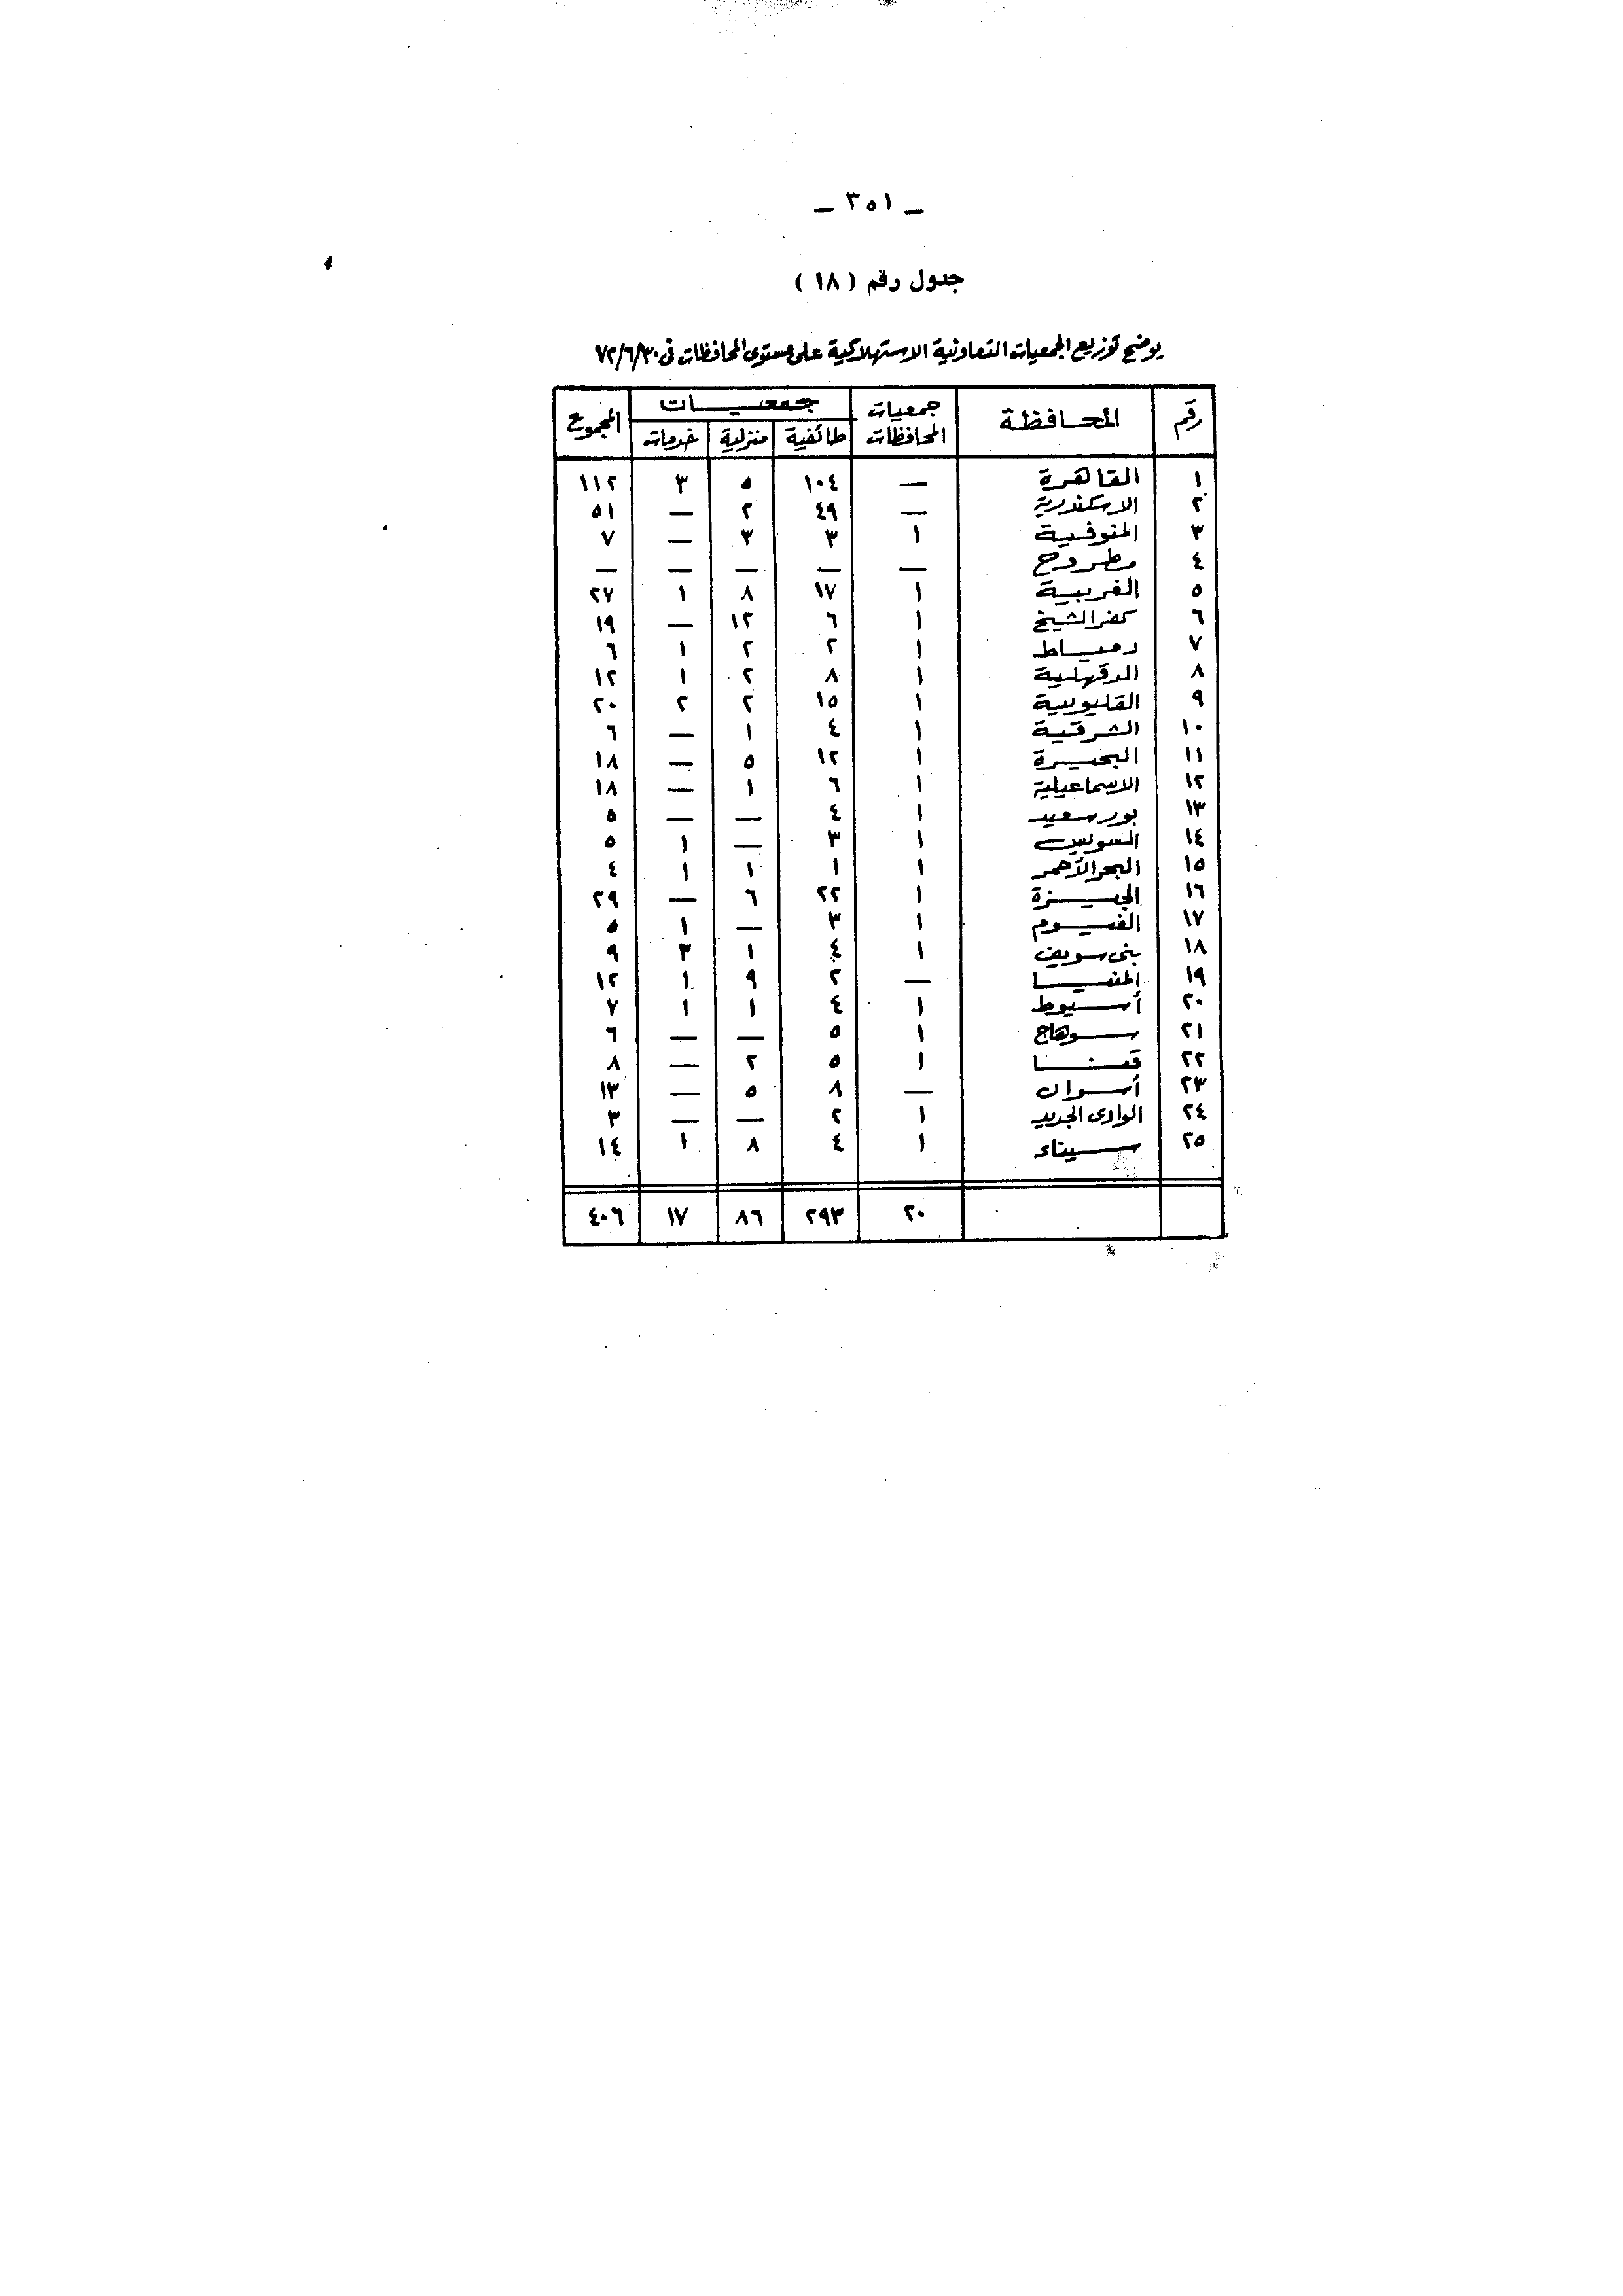 ــ ٣٥١ ــ
جدول رقم ( ١٨ )
يوضح توزيع الجمعيات التعاونية الاستهلاكية على مستوى المحافظات فى ٧٢/٦/٣٠
رقم المحافظة جمعيات المحافظات جمعيات المجموع
طائفية منزلية خدمات
١ القاهرة — ١٠٤ ٥ ٣ ١١٢
٢ الاسكندرية — ٤٩ ٢ — ٥١
٣ المنوفية ١ ٣ ٣ — ٧
٤ مطروح — — — — —
٥ الغربية ١ ١٧ ٨ ١ ٢٧
٦ كفر الشيخ ١ ٦ ١٢ — ١٩
٧ دمياط ١ ٢ ٢ ١ ٦
٨ الدقهلية ١ ٨ ٢ ١ ١٢
٩ القليوبية ١ ١٥ ٢ ٢ ٢٠
١٠ الشرقية ١ ٤ ١ — ٦
١١ البحيرة ١ ١٢ ٥ — ١٨
١٢ الاسماعيلية ١ ٦ ١ — ١٨
١٣ بورسعيد ١ ٤ — — ٥
١٤ السويس ١ ٣ — ١ ٥
١٥ البحر الأحمر ١ ١ ١ ١ ٤
١٦ الجيزة ١ ٢٢ ٦ — ٢٩
١٧ الفيوم ١ ٣ — ١ ٥
١٨ بنى سويف ١ ٤ ١ ٣ ٩
١٩ المنيا — ٢ ٩ ١ ١٢
٢٠ أسيوط ١ ٤ ١ ١ ٧
٢١ سوهاج ١ ٥ — — ٦
٢٢ قنا ١ ٥ ٢ — ٨
٢٣ أسوان — ٨ ٥ — ١٣
٢٤ الوادى الجديد ١ ٢ — — ٣
٢٥ سيناء ١ ٤ ٨ ١ ١٤
٢٠ ٢٩٣ ٨٦ ١٧ ٤٠٦